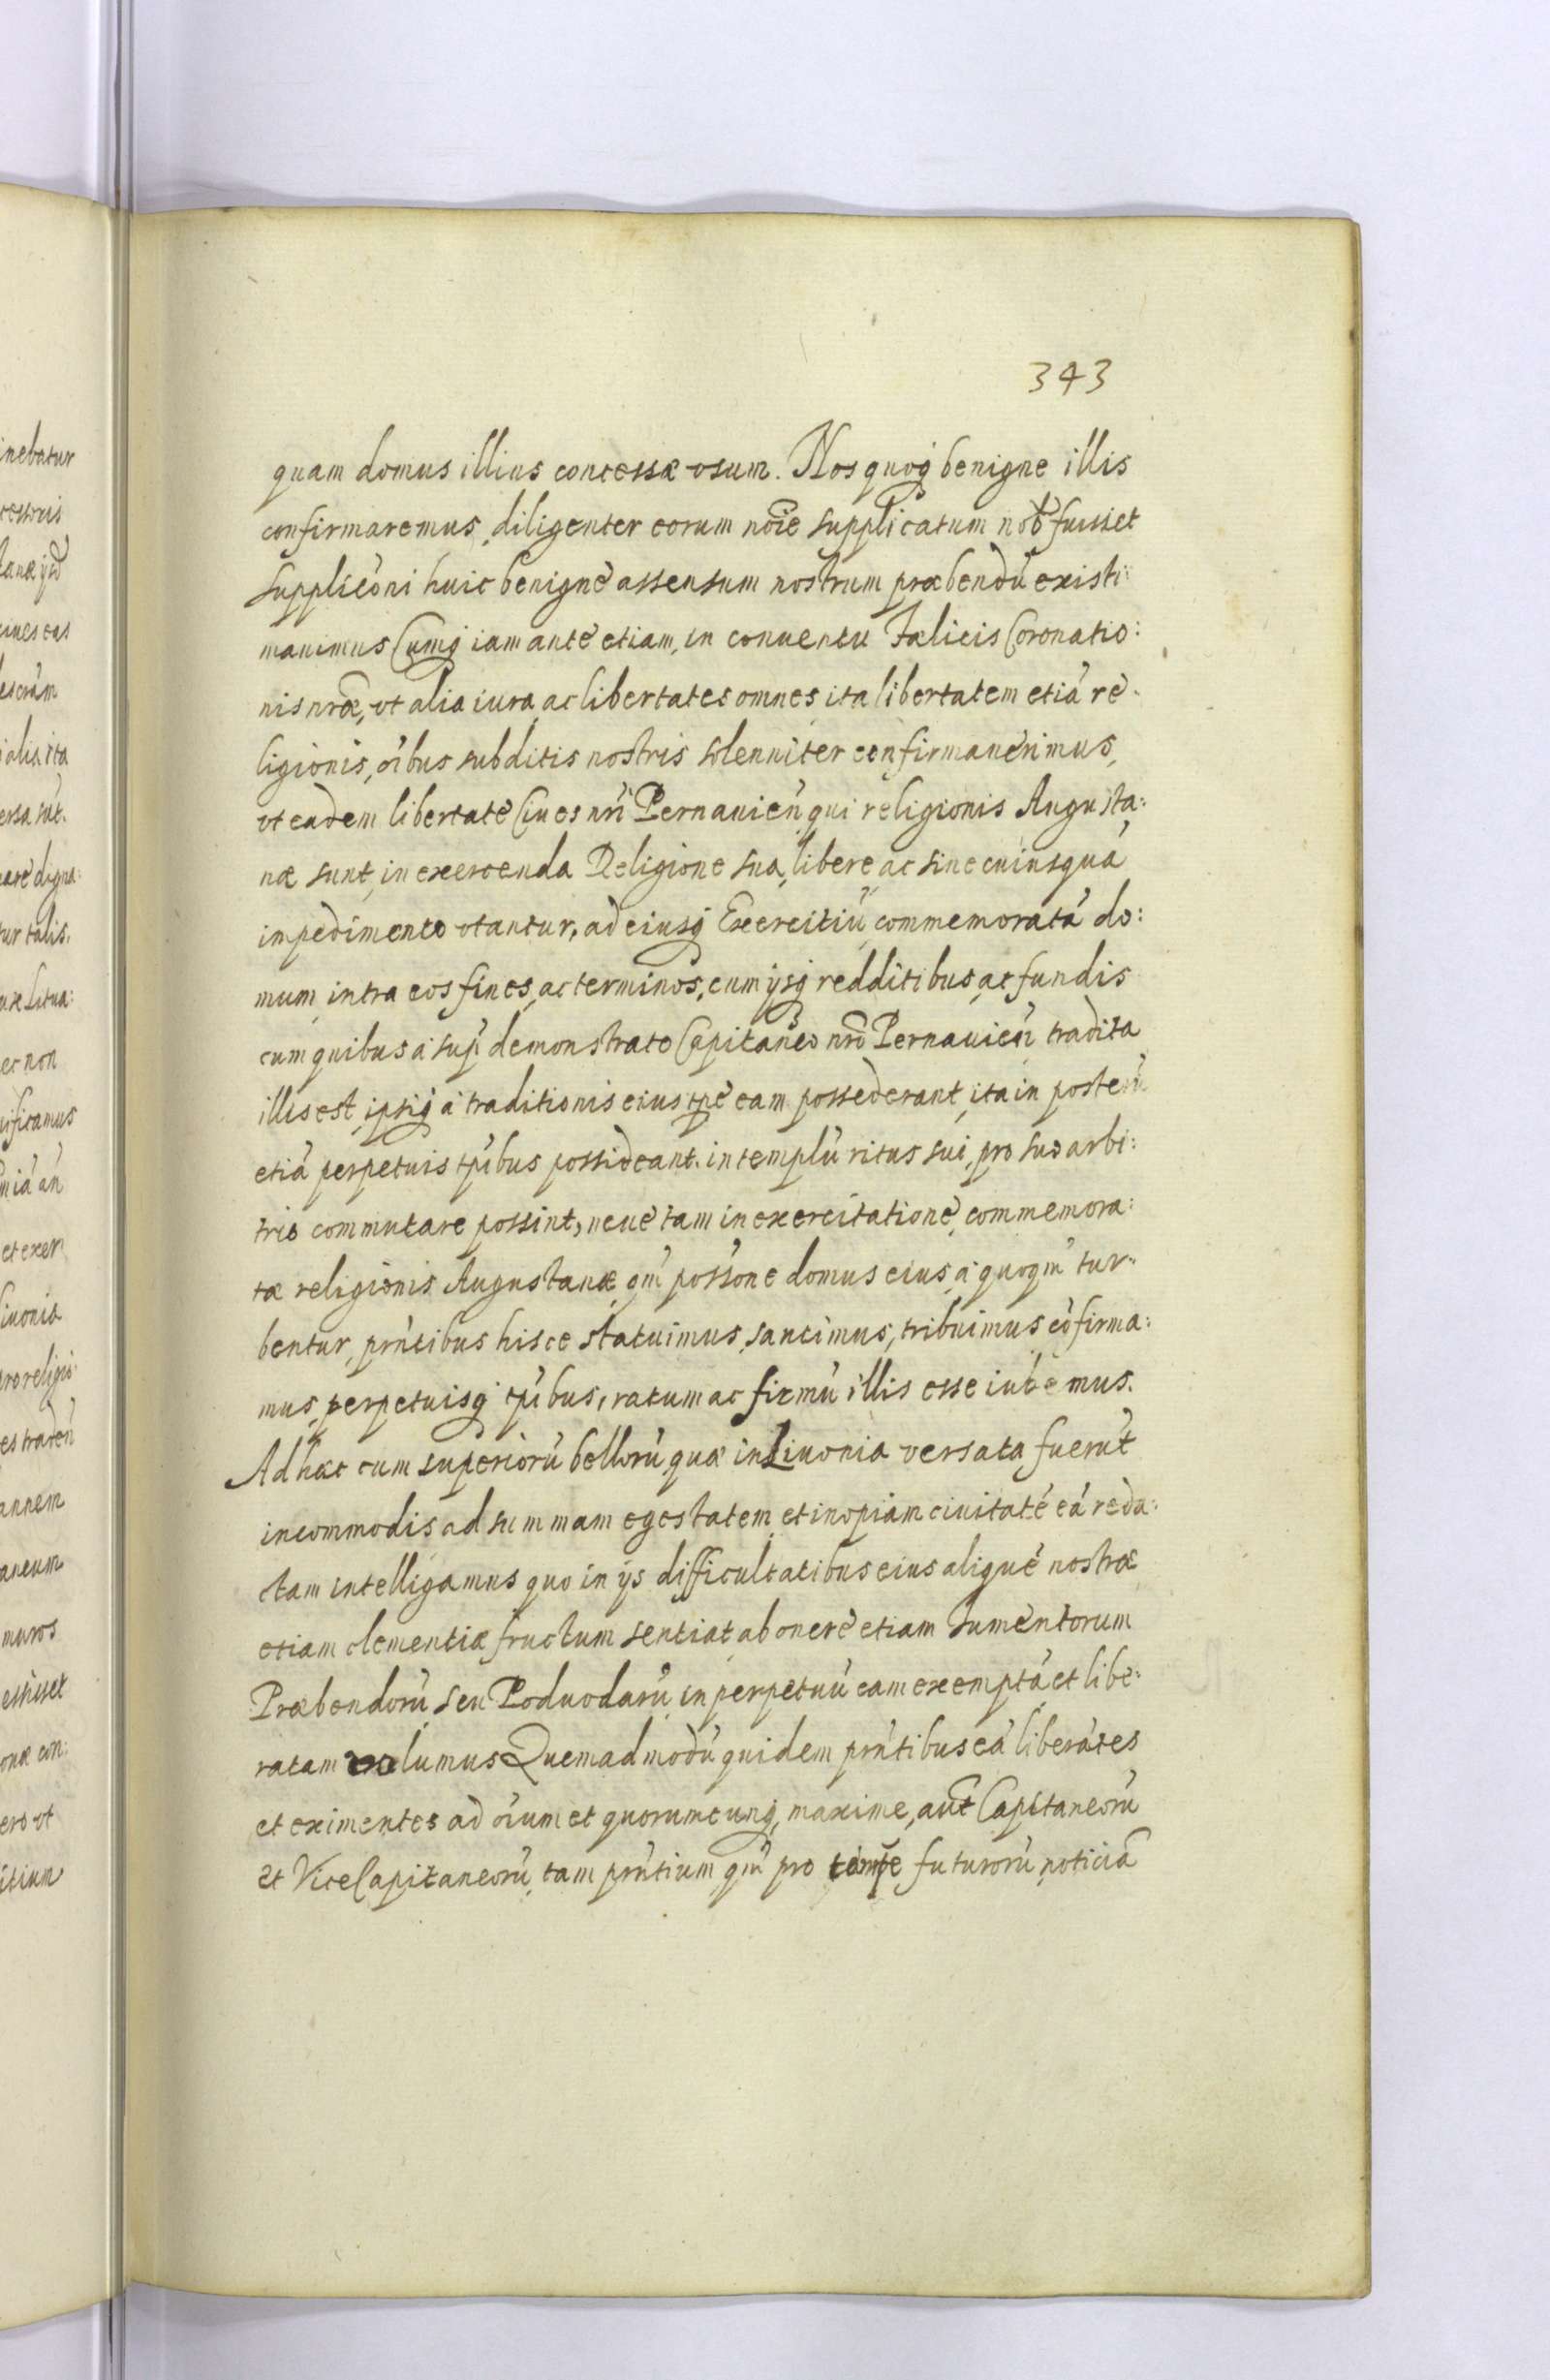 343
quam domus illius concessæ vsum. Nos quoq benigne illis
confirmaremus, diligenter eorum nõie supplicatum nob fuisset
suppliconi huic benigne assensum nostrum præbendũ existi:
mauimus Cumq iam ante etiam, in conuentu Fælicis Coronatio:
nis nræ, vt alia iura, ac libertates omnes ita libertatem etiã re:
ligionis, oibus subditis nostris solenniter confirmauerimus,
vt eadem libertate Ciues nri Pernauien qui religionis Augusta:
næ sunt, in exercenda Religione sua, libere, ac sine cuiusquã
impedimento vtantur, ad eiusq Exercitiũ, commemoratã do:
mum, intra eos fines, ac terminos, cum ijsq redditibus, ac fundis
cum quibus à sup demonstrato Capitaneo nro Pernauien tradita
illis est, ipsiq à traditionis eius tpe eam possederant, ita in posterũ
etiã perpetuis tpibus possideant. in templũ ritus sui, pro suo arbi:
trio commutare possint, neue tam in exercitatione, commemora:
tæ religionis Augustanæ, qm possone domus eius, à quoqm tur:
bentur, pntibus hisce statuimus, sancimus, tribuimus, cõfirma:
mus, perpetuisq tpibus, ratum ac firmũ illis esse iubemus.
Ad hæc cum superiorũ bellorũ, quæ in Liuonia versata fuerũt
incommodis ad summam egestatem, et inopiam ciuitatẽ eã reda:
ctam intelligamus quo in ijs difficultatibus eius aliquẽ nostræ
etiam clementiæ fructum sentiat, ab onere etiam Iumentorum
Præbendorũ, seu Poduodarũ, in perpetuũ eam exemptã, et libe:
ratam volumus Quemadmodũ quidem pntibus eã liberãtes
et eximentes ad oium et quorumcunq, maxime, aut Capitaneorũ
et ViceCapitaneorũ, tam pntium, qm pro tempe futurorũ, noticiã